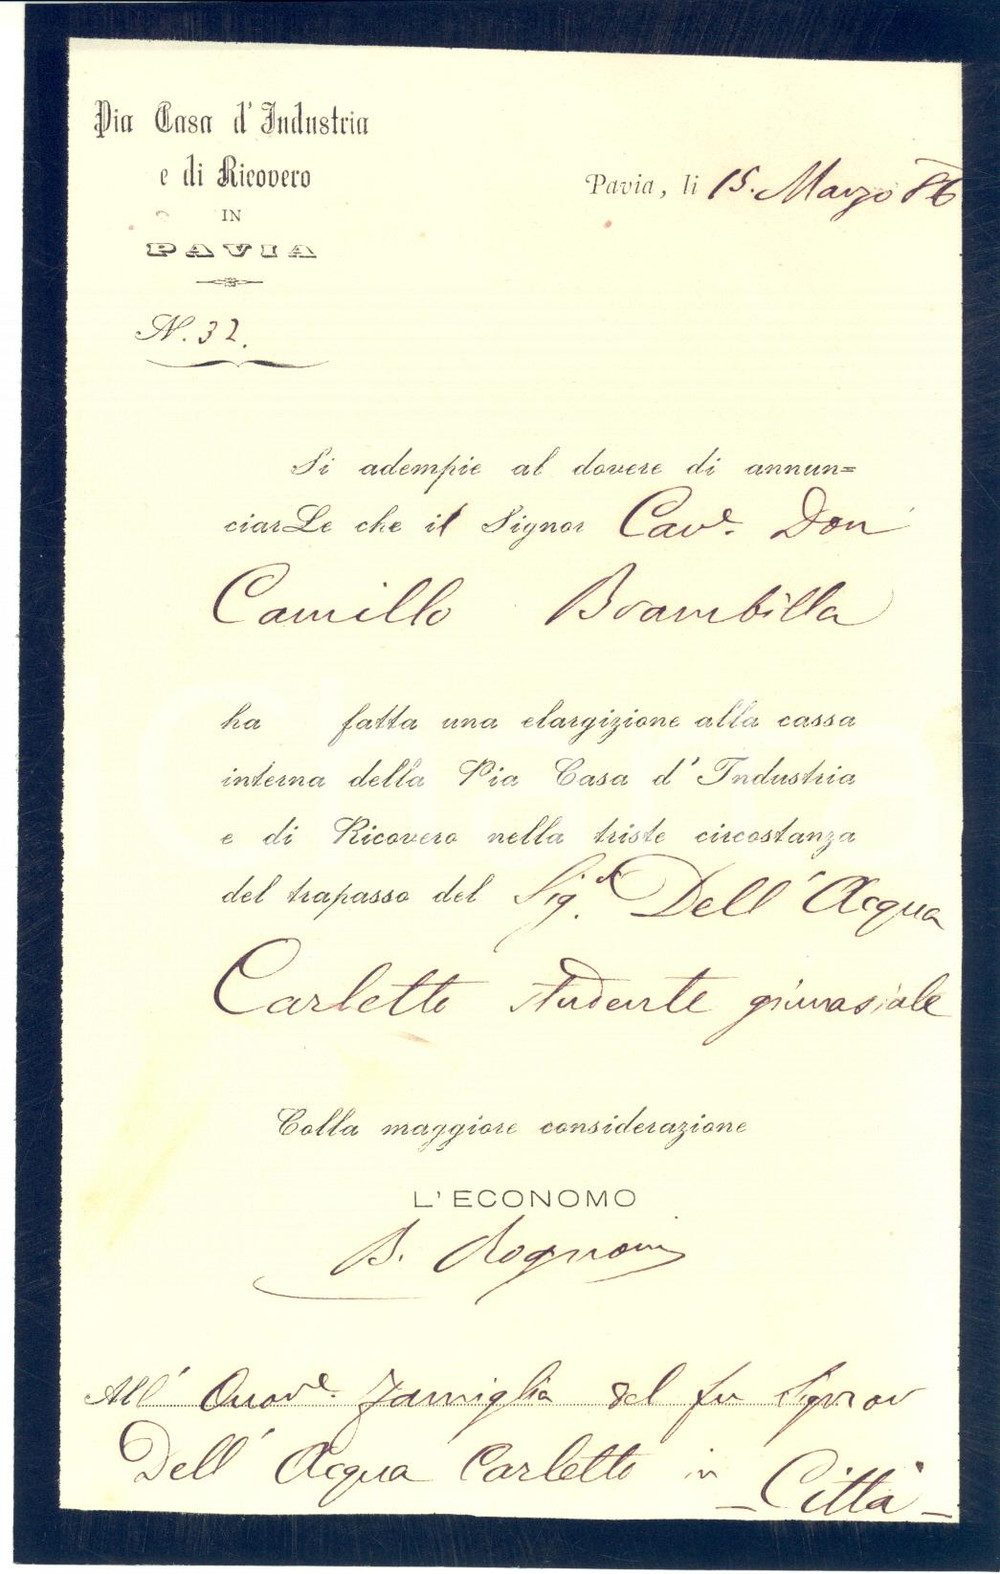 Pia Casa d'Industria
e di Ricovero
IN
PAVIA
Pavia, li 15. Marzo 86
N. 32.
Si adempie al dovere di annun=
ciarLe che il Signor Cav.e Don
Camillo Brambilla
ha fatta una elargizione alla cassa
interna della Pia Casa d'Industria
e di Ricovero nella triste circostanza
del trapasso del Sig.r Dell'Acqua
Carletto studente ginnasiale
Colla maggiore considerazione
L'ECONOMO
B. Rognoni
All' Onov.le Famiglia del fu Signor
Dell'Acqua Carletto in
- Città -